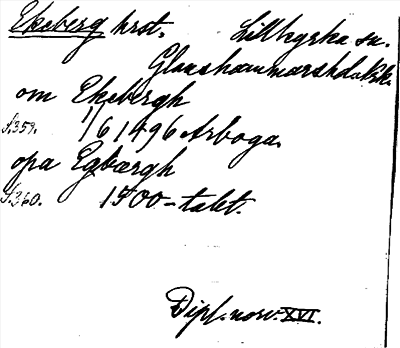 Ekeberg hrst. Lillkyrka sn.
Glanshammars hd. Örk.
om Ekebergh
S. 359. 1/6 1496 Arboga.
opa Egbærgh
S. 360. 1500-talet.
Dipl. norv. XVI.